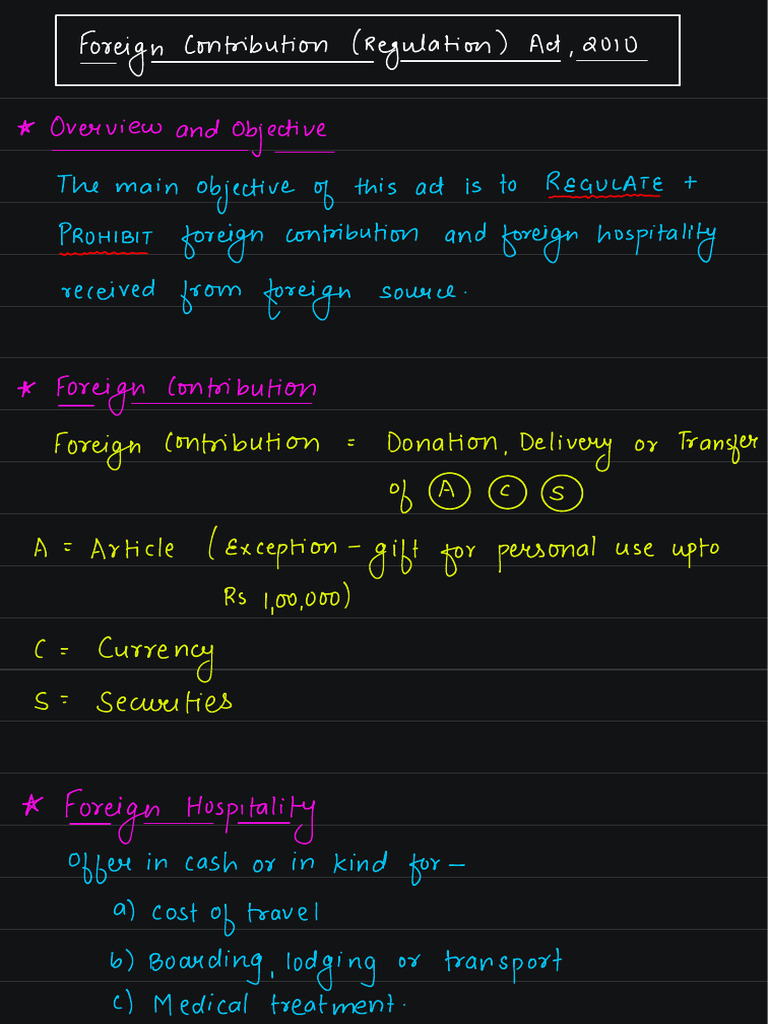 Foreign Contribution (Regulation) Act, 2010
* Overview and Objective
The main objective of this act is to REGULATE +
PROHIBIT foreign contribution and foreign hospitality
received from foreign source.
* Foreign Contribution
Foreign Contribution = Donation, Delivery or Transfer
of A C S
A = Article (Exception - gift for personal use upto
Rs 1,00,000)
C = Currency
S = Securities
* Foreign Hospitality
Offer in cash or in kind for -
a) Cost of travel
b) Boarding, lodging or transport
c) Medical treatment.